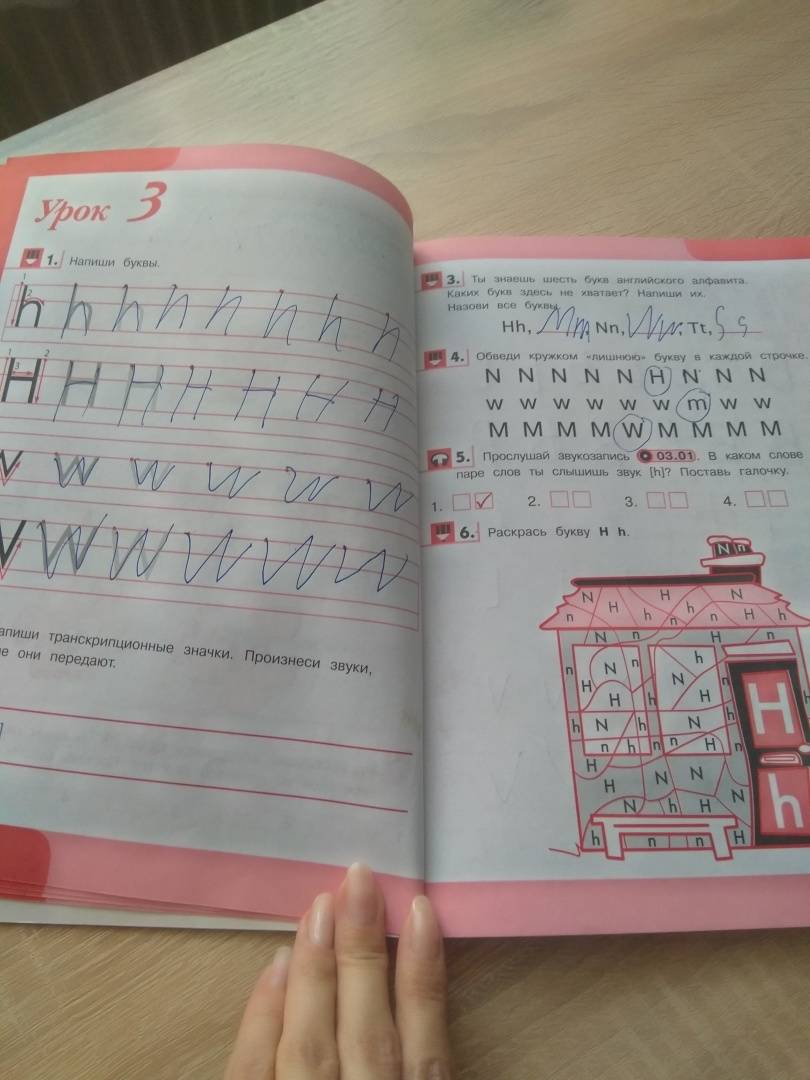 Урок 3
1. Напиши буквы.
h h h h h h h h
H H H H H H H H
w w w w w w
W W W W W W
апиши транскрипционные значки. Произнеси звуки,
е они передают.
3. Ты знаешь шесть букв английского алфавита.
Каких букв здесь не хватает? Напиши их.
Назови все буквы.
Hh, Mm, Nn, Ww, Tt, Ss
4. Обведи кружком «лишнюю» букву в каждой строчке.
N N N N N H N N N
w w w w w w m w w
M M M M W M M M M
5. Прослушай звукозапись 03.01. В каком слове
паре слов ты слышишь звук [h]? Поставь галочку.
1. 2. 3. 4.
6. Раскрась букву H h.
N n
N H N
n H h n h H h
N n H n
n h
H N n N
H h H
h N h N h
n h n n H n
H
H N N
N h H N
h n n H
H
h